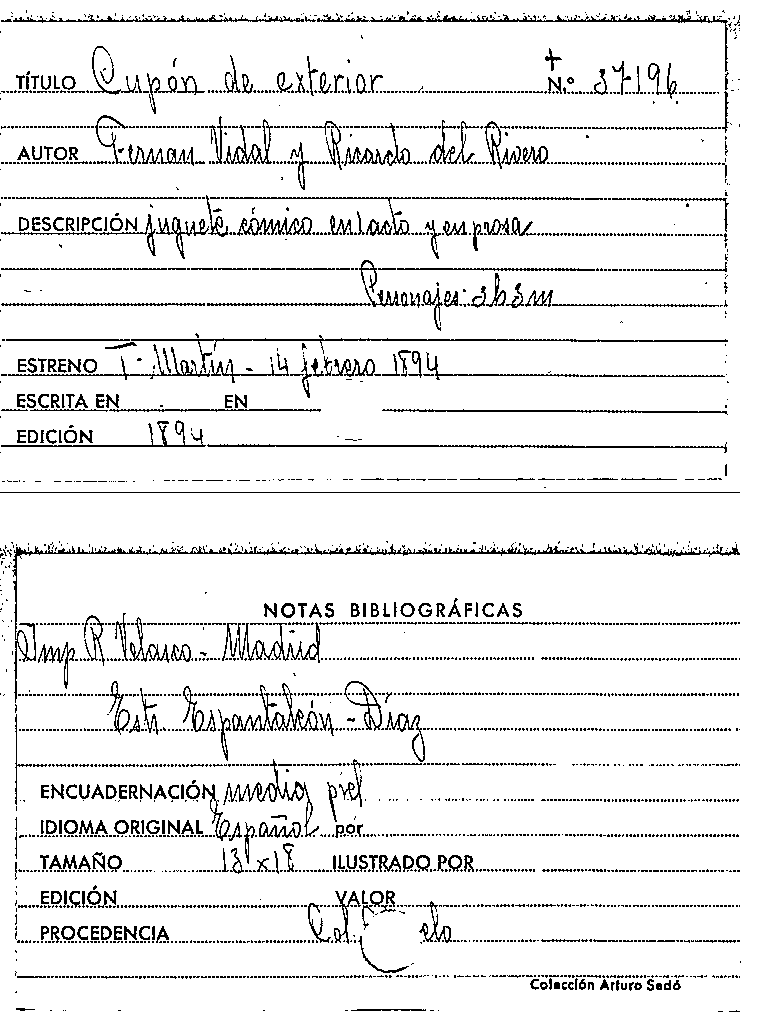 TÍTULO Cupón de exterior + N.º 37196
AUTOR Fernan Vidal y Ricardo del Rivero
DESCRIPCIÓN juguete cómico en 1 acto y en prosa
Personajes: 3h3m
ESTRENO T. Martín - 14 febrero 1894
ESCRITA EN EN
EDICIÓN 1894
NOTAS BIBLIOGRÁFICAS
Imp R Velasco - Madrid
Estr. Espantaleón - Díaz
ENCUADERNACIÓN media piel
IDIOMA ORIGINAL Español por
TAMAÑO 13 x 18 ILUSTRADO POR
EDICIÓN VALOR
PROCEDENCIA Col.
Colección Arturo Sedó